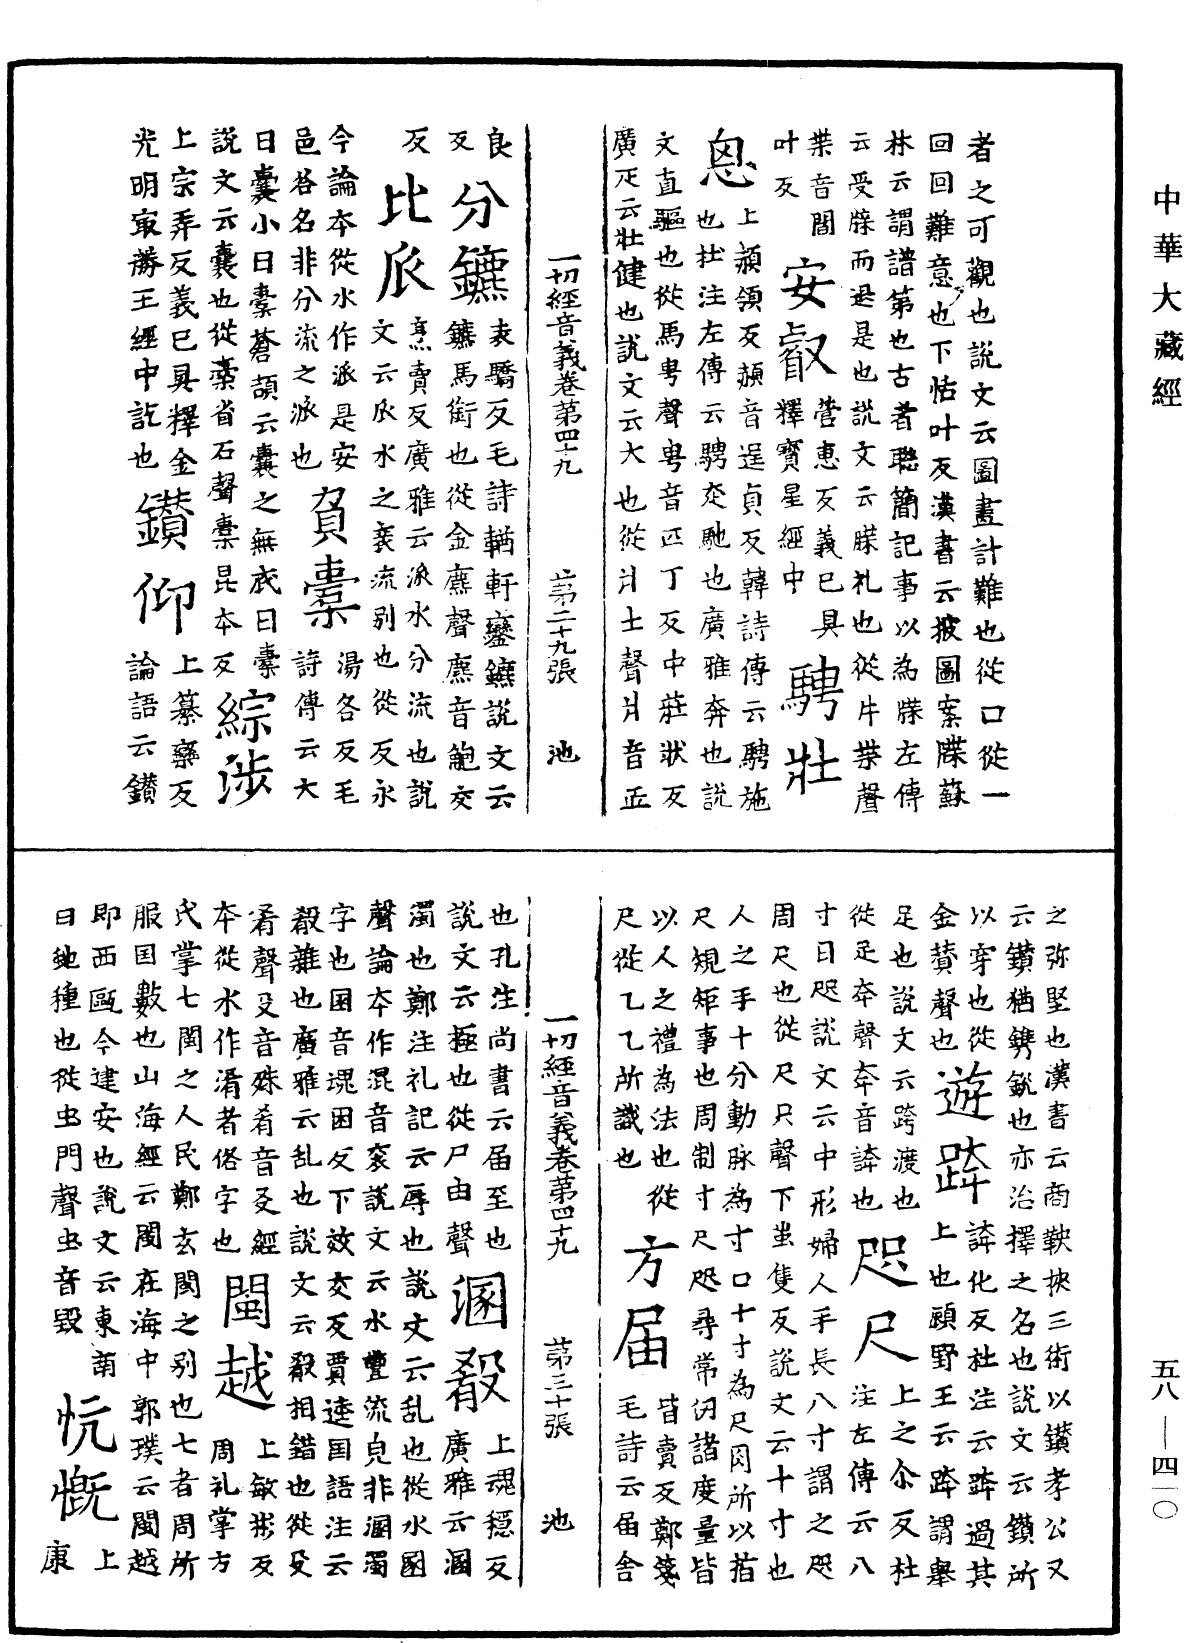 中華大藏經
者之可觀也說文云圖畫計難也從口從一
回回難意也下恬叶反漢書云披圖案牒蘇
林云謂譜第也古者聯簡記事以為牒左傳
云受牒而退是也說文云牒札也從片枼聲
枼音閻
叶反
安叡
營惠反義已具
釋寶星經中
騁壯
上頳領反頳音逞貞反韓詩傳云騁施
也杜注左傳云騁奔馳也廣雅奔也說
文直驅也從馬甹聲甹音匹丁反中莊狀反
廣疋云壯健也說文云大也從爿土聲爿音疋
良反
一切經音義卷第四十九 第二十九張 池
良
反
分鑣
表驕反毛詩輶軒鑾鑣說文云
鑣馬銜也從金麃聲麃音皰交
反
比𠂢
烹賣反廣雅云派水分流也說
文云𠂢水之衺流別也從反永
今論本從水作派是安
邑谷名非分流之派也
負橐
湯各反毛
詩傳云大
曰囊小曰橐蒼頡云囊之無底曰橐
說文云囊也從㯻省石聲㯻昆本反
綜涉
上宗弄反義已具釋金
光明㝡勝王經中訖也
鑽仰
上纂欒反
論語云鑽
之弥堅也漢書云商鞅挾三術以鑽孝公又
云鑽猶鐫銳也亦治擇之名也說文云鑽所
以穿也從
金贊聲也
遊跨
誇化反杜注云跨過其
上也顧野王云跨謂舉
足也說文云跨渡也
從足夸聲夸音誇也
咫尺
上之尒反杜
注左傳云八
寸曰咫說文云中形婦人手長八寸謂之咫
周尺也從尺只聲下蚩隻反說文云十寸也
人之手十分動脉為寸口十寸為尺尺所以指
尺規矩事也周制寸尺咫尋常仞諸度量皆
以人之禮為法也從
尺從乙乙所識也
方屆
皆賣反鄭箋
毛詩云屆舍
一切經音義卷第四十九 第三十張 池
也孔注尚書云屆至也
說文云極也從尸由聲
溷殽
上魂穩反
廣雅云溷
濁也鄭注礼記云辱也說文云乱也從水圂
聲論本作混音衮說文云水豐流皃非溷濁
字也圂音魂困反下效交反賈逵国語注云
殽雜也廣雅云乱也說文云殽相錯也從殳
肴聲殳音殊肴音爻經
本從水作淆者俗字也
閩越
上敏彬反
周礼掌方
氏掌七閩之人民鄭玄閩之别也七者周所
服国數也山海經云閩在海中郭璞云閩越
即西甌今建安也說文云東南
曰虵種也從虫門聲虫音毀
忼慨
上
康
五八—四一〇